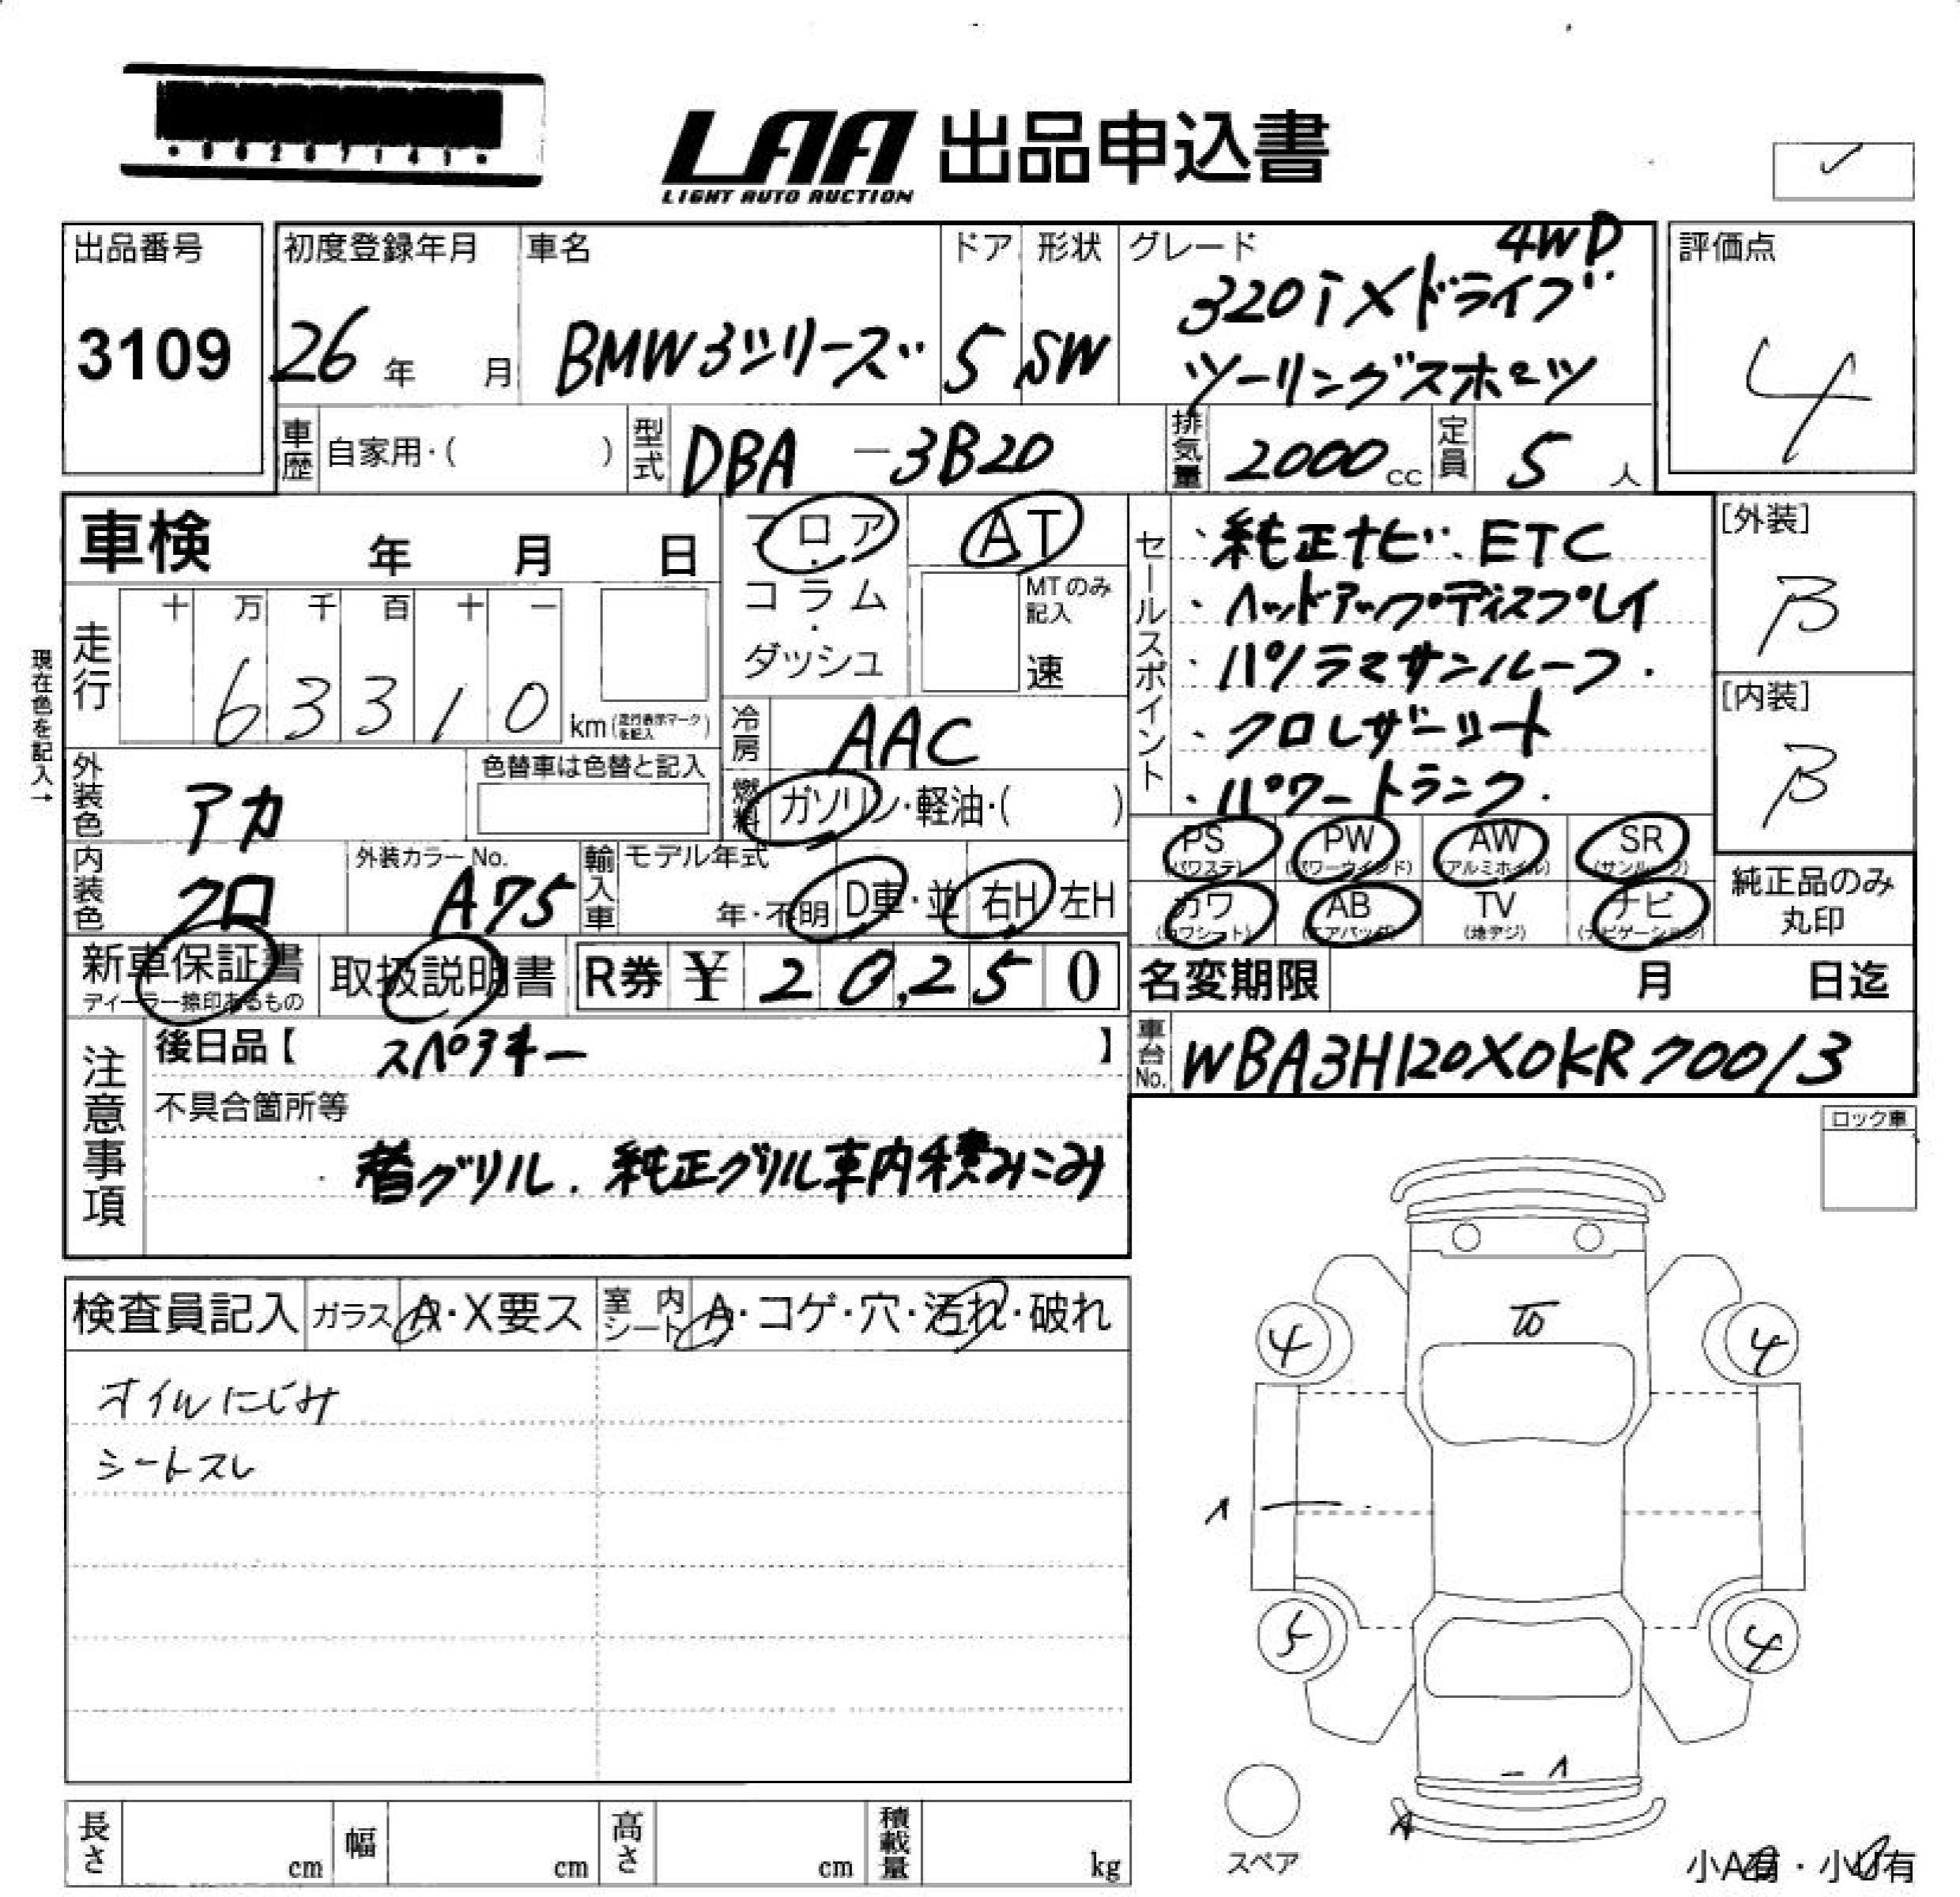 LAA 出品申込書
LIGHT AUTO AUCTION
出品番号
3109
初度登録年月
26年 月
車名
BMW3シリーズ
ドア
5
形状
SW
グレード
4WD
320i Xドライブ
ツーリングスポーツ
評価点
4
車歴 自家用・( )
型式 DBA-3B20
排気量 2000cc
定員 5人
車検 年 月 日
フロア・コラム・ダッシュ
AT
MTのみ記入
速
セールスポイント
・純正ナビ・ETC
・ヘッドアップディスプレイ
・パノラマサンルーフ・
・クロレザーシート
・パワートランク・
[外装]
B
[内装]
B
現在色を記入→
走行
十 万 千 百 十 一
63310 km(走行表示マークを記入)
冷房 AAC
外装色 アカ
色替車は色替と記入
燃料 ガソリン・軽油・( )
PS (パワステ) PW (パワーウインド) AW (アルミホイル) SR (サンルーフ)
カワ (カワシート) AB (エアバッグ) TV (地デジ) ナビ (ナビゲーション)
純正品のみ丸印
内装色 クロ
外装カラーNo. A75
輸入車 モデル年式 年・不明 D車・並 右H 左H
新車保証書 ディーラー捺印あるもの
取扱説明書
R券 ¥ 20,250
名変期限 月 日迄
車台No. WBA3H120X0KR70013
注意事項
後日品【 スペアキー 】
不具合箇所等
替グリル.純正グリル車内積みこみ
ロック車
検査員記入 ガラス A・X要ス 室内シート A・コゲ・穴・汚れ・破れ
オイルにじみ
シートスレ
4 4
5 4
スペア
長さ cm 幅 cm 高さ cm 積載量 kg
小A有・小U有